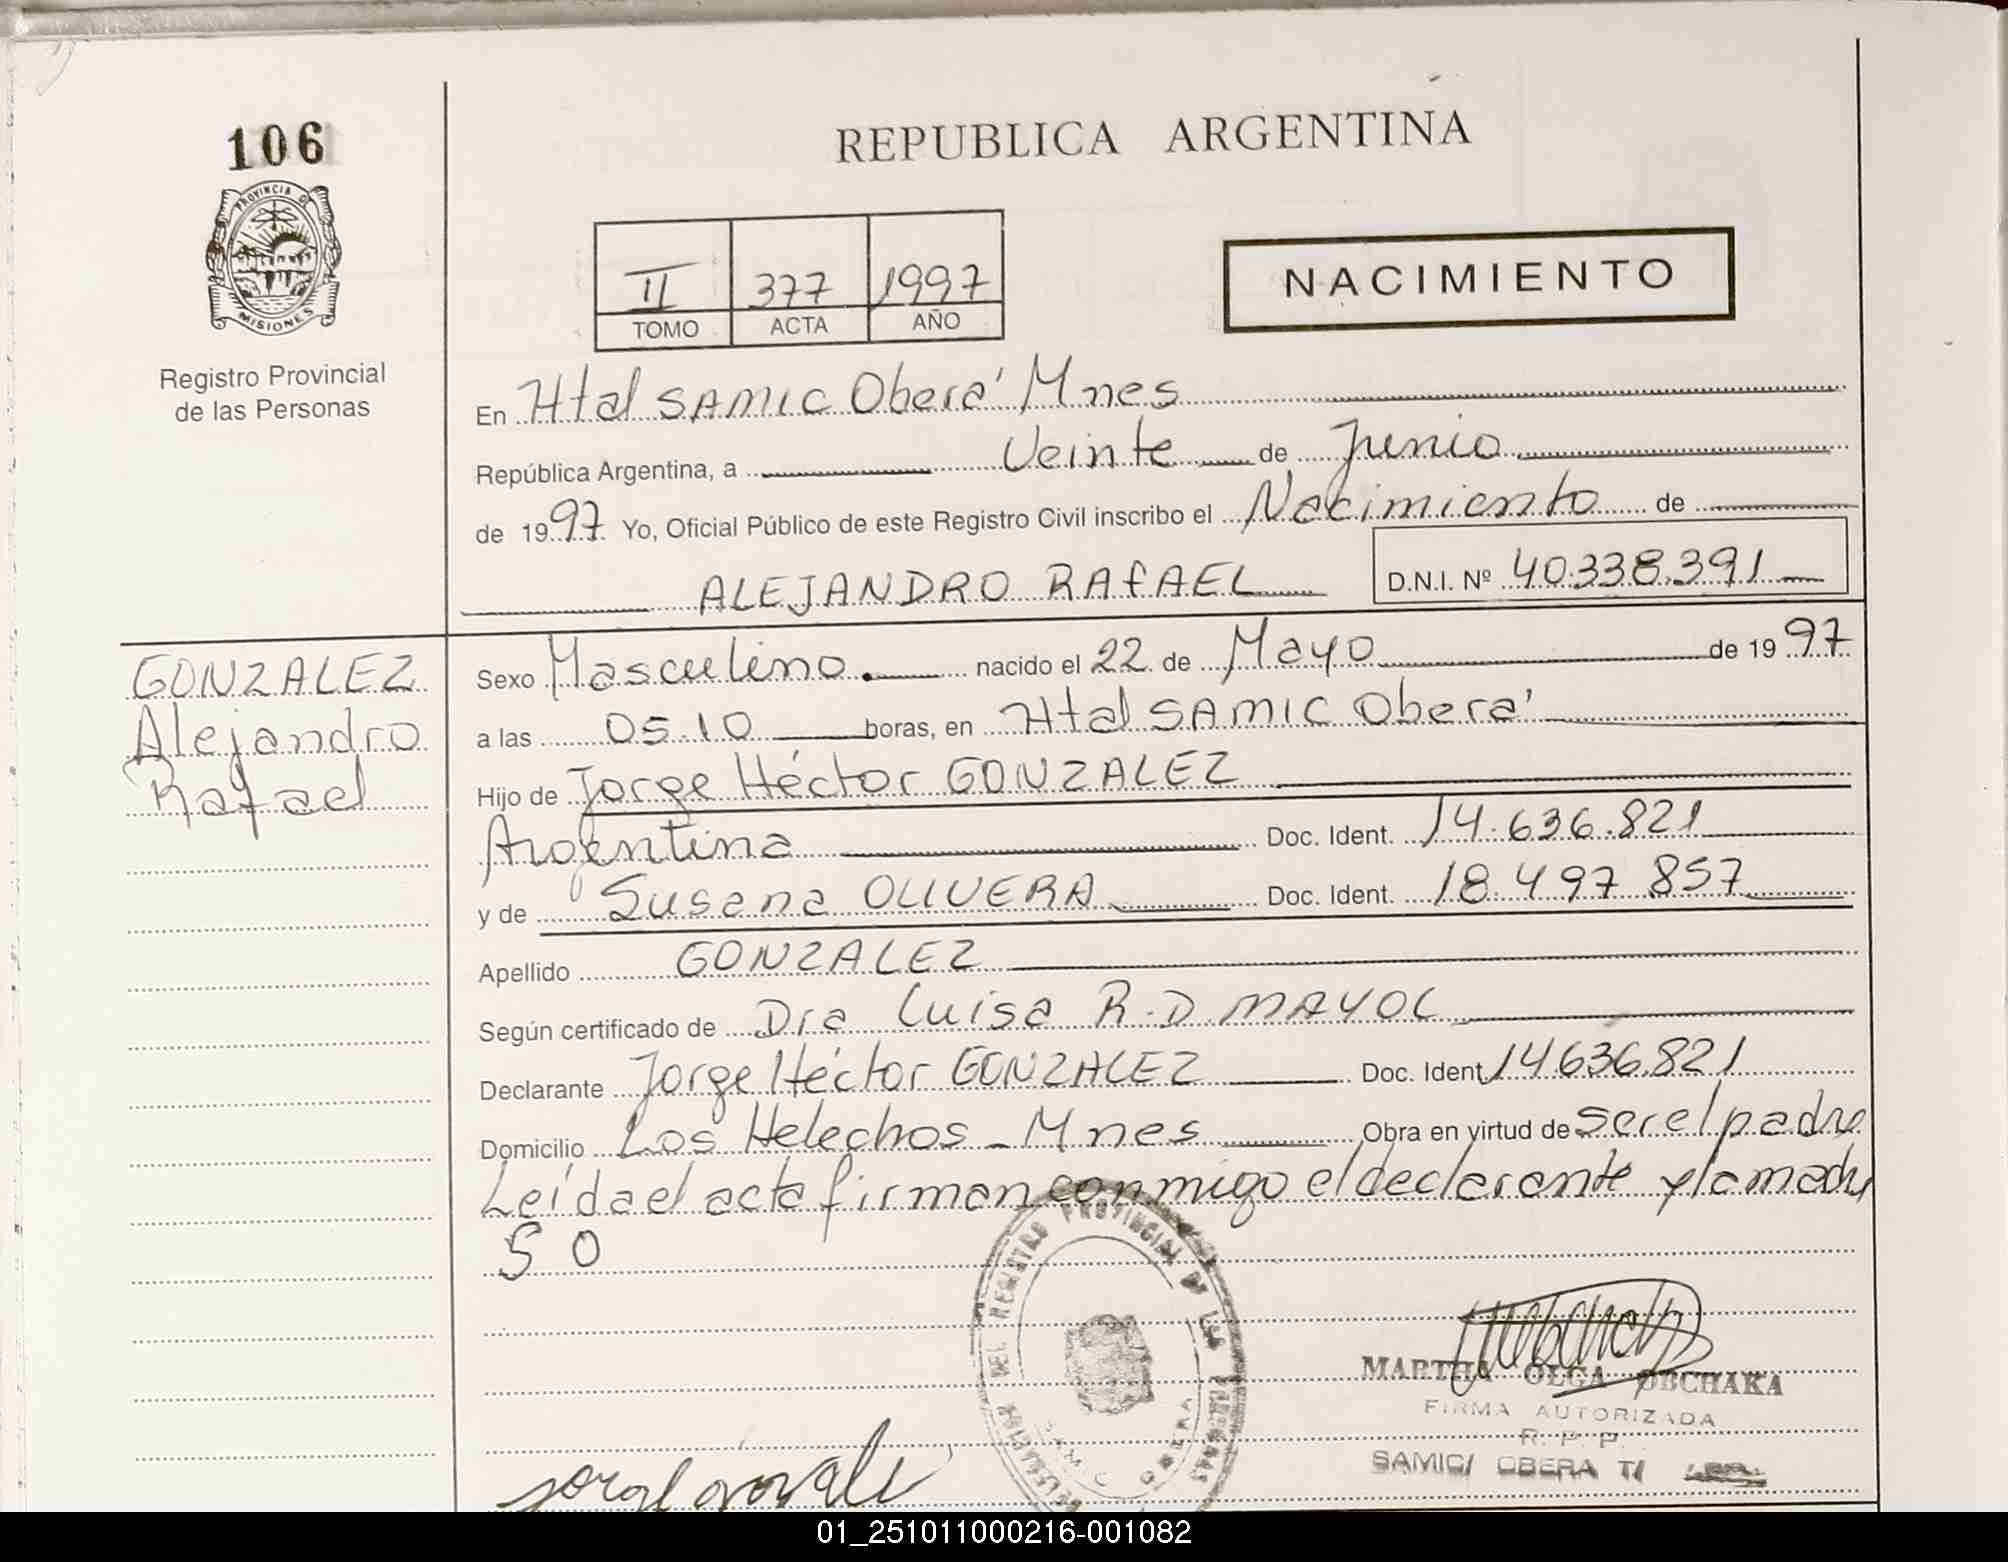 106
PROVINCIA D
MISIONES
Registro Provincial
de las Personas
REPUBLICA ARGENTINA
II 377 1997
TOMO ACTA AÑO
NACIMIENTO
En Htal SAMIC Oberá Mnes
República Argentina, a Veinte de Junio
de 1997 Yo, Oficial Público de este Registro Civil inscribo el Nacimiento de
ALEJANDRO RAFAEL D.N.I. Nº 40.338.391
GONZALEZ
Alejandro
Rafael
Sexo Masculino. nacido el 22 de Mayo de 1997
a las 05.10 horas, en Htal SAMIC Oberá
Hijo de Jorge Héctor GONZALEZ
Argentina Doc. Ident. 14.636.821
y de Susana OLIVERA Doc. Ident. 18.497.857
Apellido GONZALEZ
Según certificado de Dra Luisa R.D. MAYOL
Declarante Jorge Héctor GONZALEZ Doc. Ident 14.636.821
Domicilio Los Helechos - Mnes Obra en virtud de ser el padre
Leída el acta firman conmigo el declarante y la madre
S O
REGISTRO PROVINCIAL DE LAS PERSONAS
MARTHA OLGA OBCHAKA
FIRMA AUTORIZADA
R. P. P.
SAMIC/ OBERA T/
01_251011000216-001082